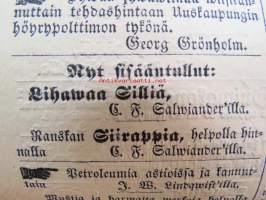 nuttain tehdashintaan Uuskaupungin
höyrypolttimon tykönä.
Georg Grönholm.
Nyt sisääntullut:
Lihawaa Silliä,
C. F. Salwiander'illa.
Ranskan Siirappia, helpolla hin-
nalla C. F. Salwiander'illa.
Petroleumia astioissa ja kannut-
tain J. W. Lindqwist'illa.